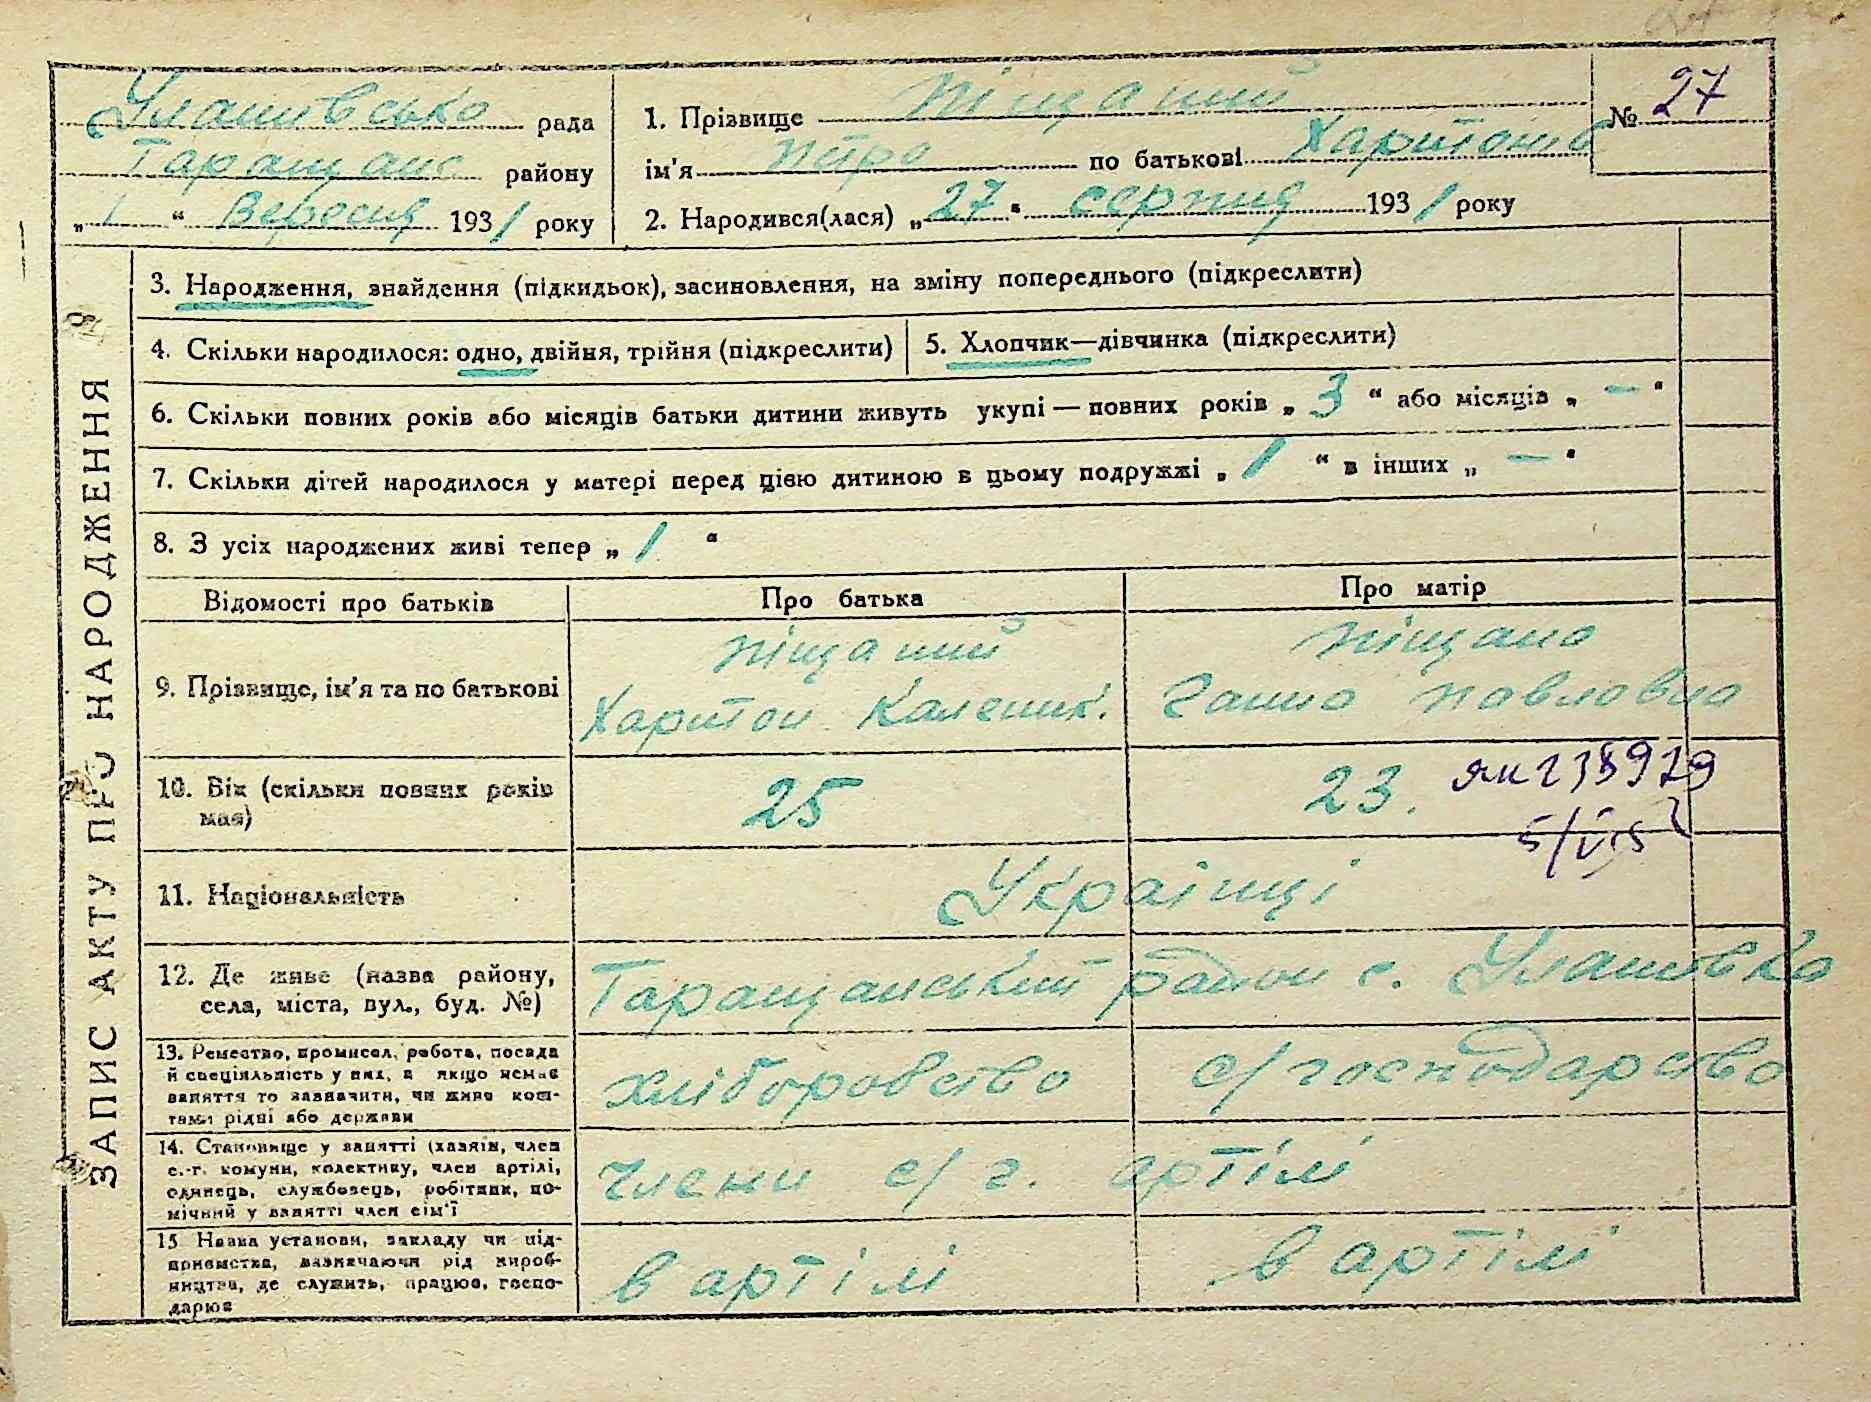 Улашивсько рада
Таращанс району
„ 1 “ Вересня 1931 року
1. Прізвище Піщаний
ім'я Петро по батькові Харитонів
№ 27
2. Народився(лася) „ 27 “ серпня 1931 року
ЗАПИС АКТУ ПРО НАРОДЖЕННЯ
3. Народження, знайдення (підкидьок), засиновлення, на зміну попереднього (підкреслити)
4. Скільки народилося: одно, двійня, трійня (підкреслити)
5. Хлопчик—дівчинка (підкреслити)
6. Скільки повних років або місяців батьки дитини живуть укупі — повних років „ 3 “ або місяців „ — “
7. Скільки дітей народилося у матері перед цією дитиною в цьому подружжі „ 1 “ в інших „ — “
8. З усіх народжених живі тепер „ 1 “
Відомості про батьків
Про батька
Про матір
9. Прізвище, ім'я та по батькові
Піщаний
Харитон Каленик.
Піщана
Ганна Павловна
10. Вік (скільки повних років
має)
25
23.
11. Національність
Українці
12. Де живе (назва району,
села, міста, вул., буд. №)
Таращанський район с. Улашовка
13. Ремество, промисел, робота, посада
й спеціяльність у них, а якщо немає
заняття то зазначити, чи живе кош-
тами рідні або держави
хліборобство
с/господарство
14. Становище у занятті (хазяїн, член
с.-г. комуни, колективу, член артілі,
одинець, службовець, робітник, по-
мічний у занятті член сім'ї
члени с/г. артілі
15. Назва установи, закладу чи під-
приємства, зазначаючи рід вироб-
ництва, де служить, працює, госпо-
дарює
в артілі
в артілі